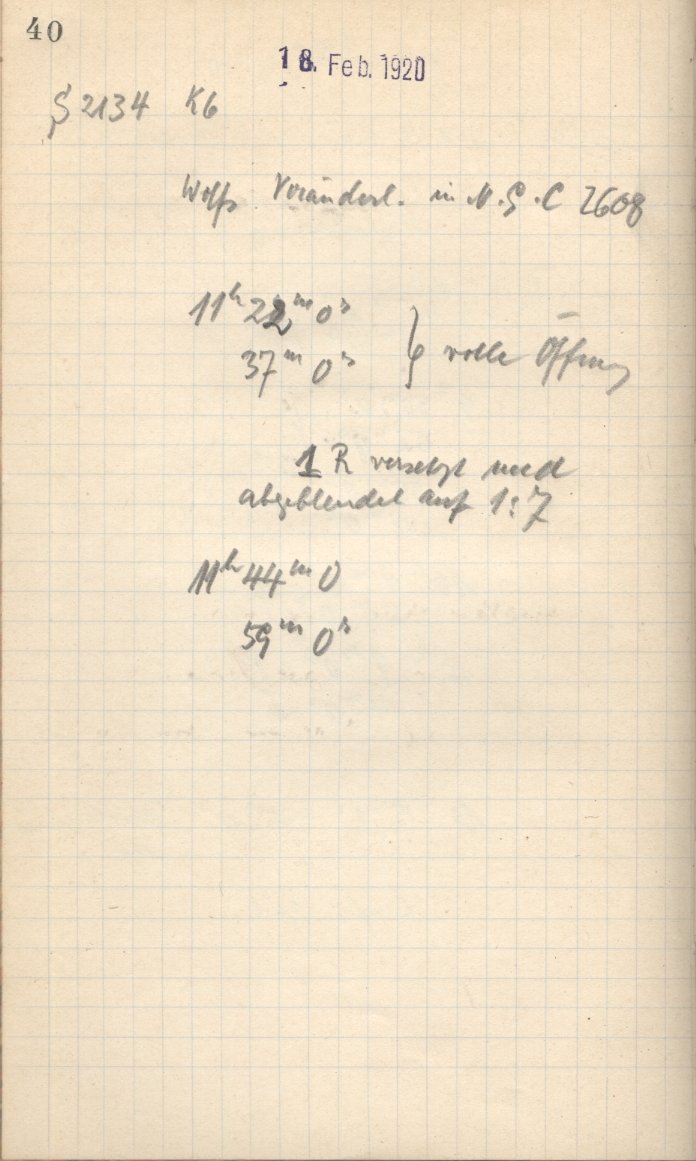 40
18. Feb. 1920
S 2134 K6
Wolfs Veränderl. in N.G.C 2608
11h 22m 0s
37m 0s } volle Öffnung
1 R versetzt und
abgeblendet auf 1:7
11h 44m 0
59m 0s